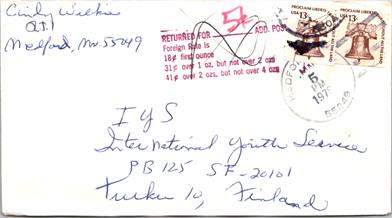 Cindy Wilkie
Rt 1
Medford, Mn. 55049
5¢
RETURNED FOR ADD. POST.
Foreign Rate is
18¢ first ounce
31¢ over 1 oz, but not over 2 ozs
41¢ over 2 ozs, but not over 4 ozs
PROCLAIM LIBERTY
USA 13c
PROCLAIM LIBERTY
USA 13c
MEDFORD
5
PM
1976
55049
IYS
International Youth Service
PB 125 SF-20101
Turku 10, Finland